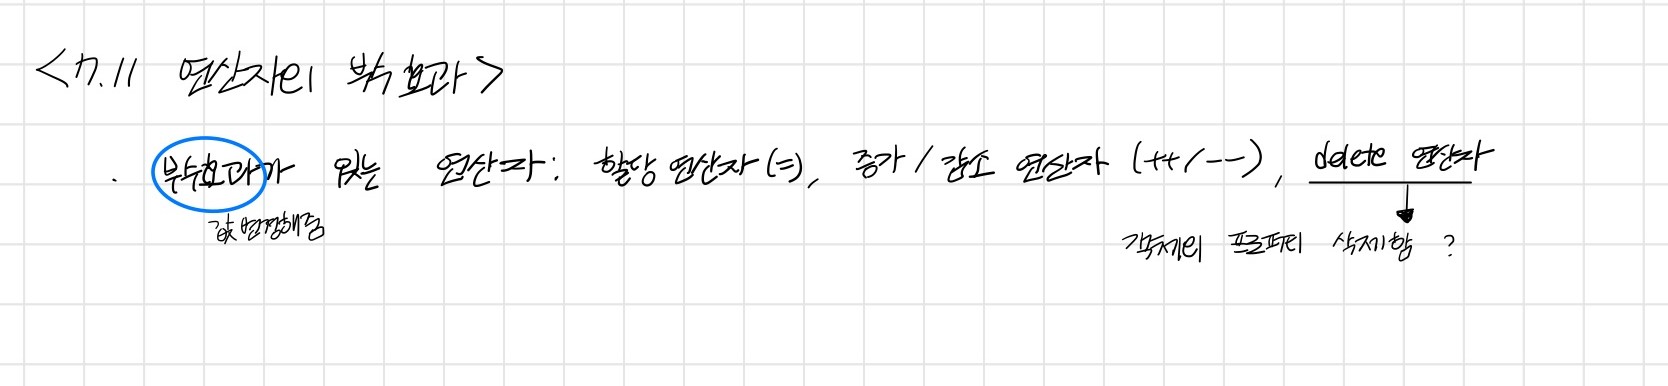 <7.11 연산자의 부수 효과>
. 부수효과가 있는 연산자: 할당 연산자(=), 증가/감소 연산자 (++/--), delete 연산자
값 변경해줌
객체의 프로퍼티 삭제함 ?